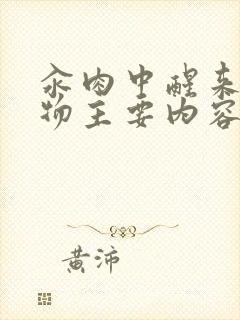 汆肉中醒来
物主要内容
黄沛